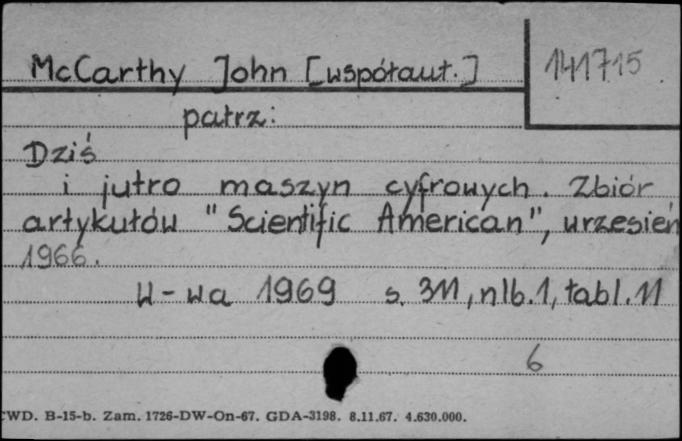 McCarthy John [współaut.]
141715
patrz:
Dziś
i jutro maszyn cyfrowych. Zbiór
artykułów "Scientific American", wrzesień
1966.
W-wa 1969 s. 311, nlb.1, tabl. 11
6
CWD. B-15-b. Zam. 1726-DW-On-67. GDA-3198. 8.11.67. 4.630.000.